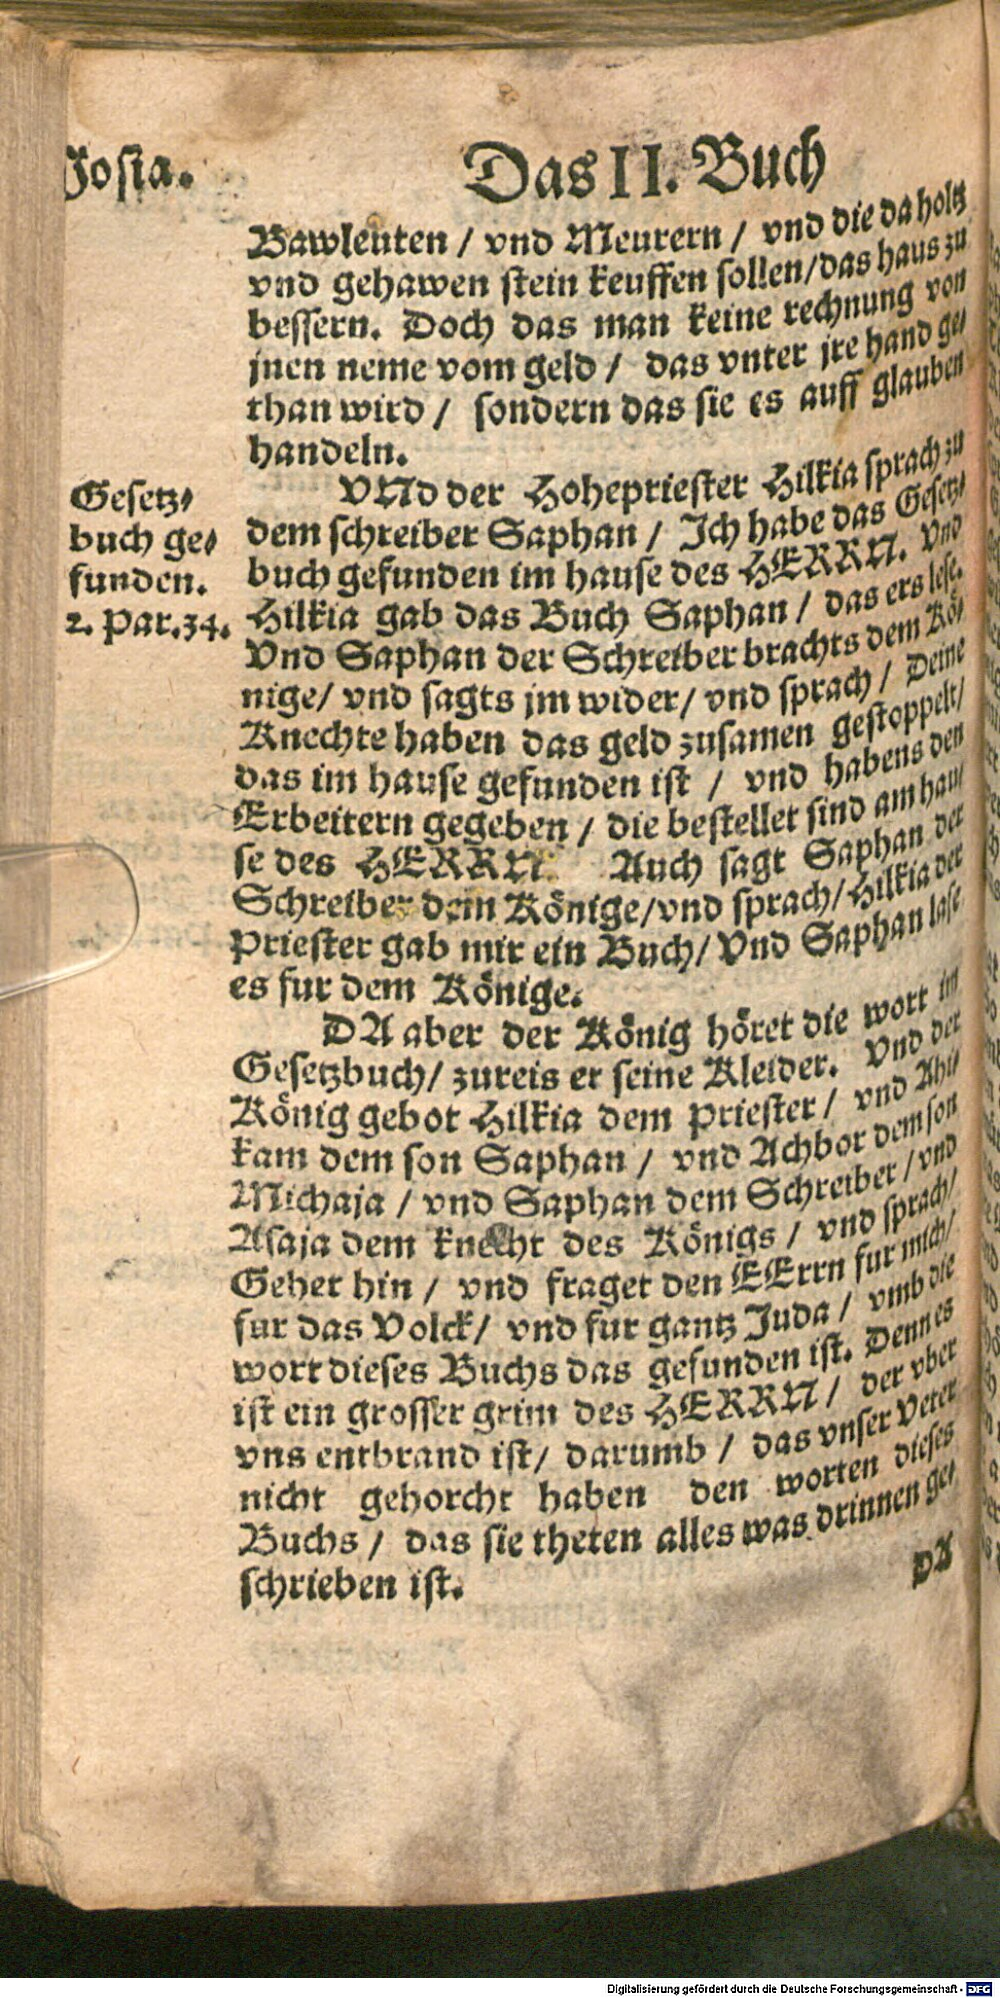 Josia.
Das II. Buch
Bawleuten / vnd Meurern / vnd die da holtz
vnd gehawen stein keuffen sollen/das haus zu
bessern. Doch das man keine rechnung von
jnen neme vom geld / das vnter jre hand ge⸗
than wird / sondern das sie es auff glauben
handeln.
VNd der Hohepriester Hilkia sprach zu
dem schreiber Saphan / Ich habe das Gesetz⸗
buch gefunden im hause des HERRN. Vnd
Hilkia gab das Buch Saphan / das ers lese.
Vnd Saphan der Schreiber brachts dem Kö⸗
nige/ vnd sagts jm wider/ vnd sprach / Deine
Knechte haben das geld zusamen gestoppelt/
das im hause gefunden ist / vnd habens den
Erbeitern gegeben / die bestellet sind am hau⸗
se des HERRN. Auch sagt Saphan der
Schreiber dem Könige/vnd sprach/Hilkia der
Priester gab mir ein Buch/ Vnd Saphan lase
es fur dem Könige.
DA aber der König höret die wort im
Gesetzbuch/ zureis er seine Kleider. Vnd der
König gebot Hilkia dem Priester / vnd Ahi⸗
kam dem son Saphan / vnd Achbor dem son
Michaja / vnd Saphan dem Schreiber / vnd
Asaja dem knecht des Königs / vnd sprach/
Gehet hin / vnd fraget den HErrn fur mich/
fur das Volck/ vnd fur gantz Juda / vmb die
wort dieses Buchs das gefunden ist. Denn es
ist ein grosser grim des HERRN / der vber
vns entbrand ist/ darumb / das vnser Veter
nicht gehorcht haben den worten dieses
Buchs / das sie theten alles was drinnen ge⸗
schrieben ist.
DA
Gesetz⸗
buch ge⸗
funden.
2. Par.34.
Digitalisierung gefördert durch die Deutsche Forschungsgemeinschaft - DFG